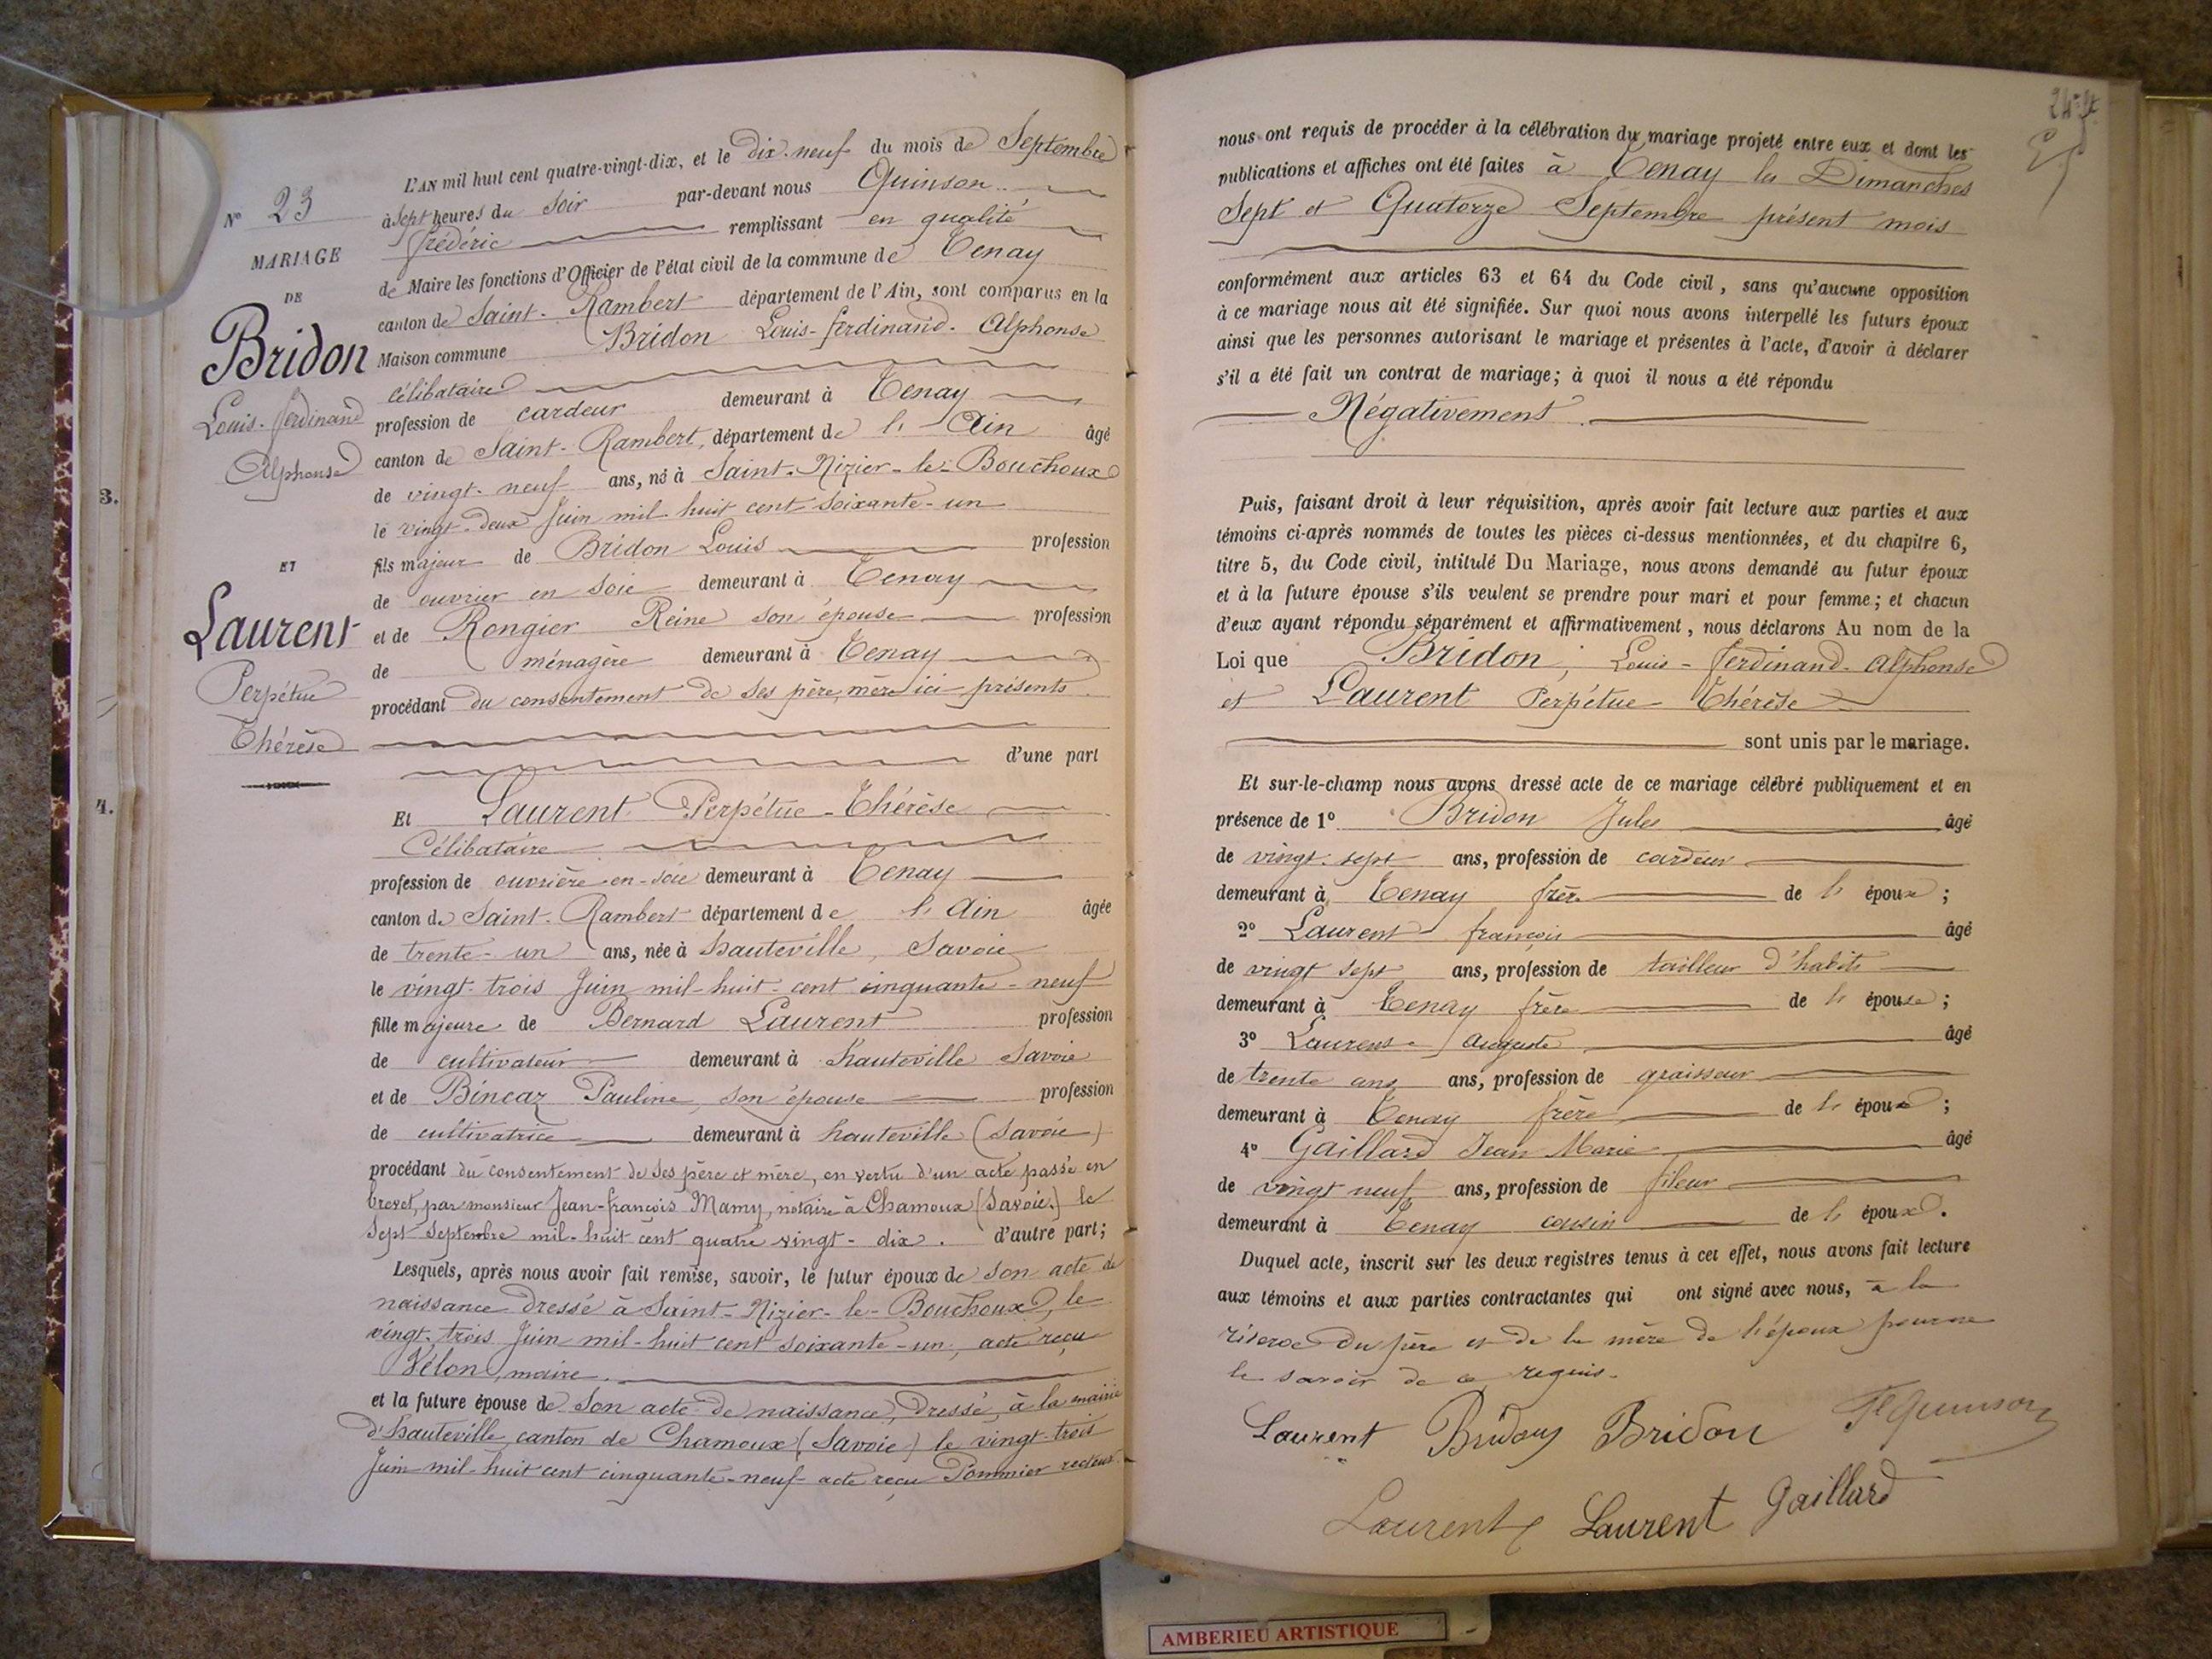 3.
4.
L'AN mil huit cent quatre-vingt-dix, et le dix-neuf du mois de Septembre
à Sept heures du Soir par-devant nous Quinson
frédéric remplissant en qualité
de Maire les fonctions d'Officier de l'état civil de la commune de Tenay
canton de Saint-Rambert département de l'Ain, sont comparus en la
Maison commune Bridon Louis-ferdinand-Alphonse
célibataire
profession de cardeur demeurant à Tenay
canton de Saint-Rambert, département de l'Ain âgé
de vingt-neuf ans, né à Saint-Nizier-le-Bouchoux
le vingt-deux Juin mil-huit cent soixante-un
fils majeur de Bridon Louis profession
de ouvrier en soie demeurant à Tenay
et de Rongier Reine son épouse profession
de ménagère demeurant à Tenay
procédant du consentement de ses père, mère ici présents
d'une part
N° 23
MARIAGE
DE
Bridon
Louis-ferdinand
Alphonse
ET
Laurent
Perpétue
Thérèse
Et Laurent Perpétue-Thérèse
Célibataire
profession de ouvrière-en-soie demeurant à Tenay
canton de Saint-Rambert département de l'Ain âgée
de trente-un ans, née à hauteville, Savoie
le vingt-trois Juin mil-huit-cent cinquante-neuf
fille majeure de Bernard Laurent profession
de cultivateur demeurant à hauteville Savoie
et de Bincaz Pauline, son épouse profession
de cultivatrice demeurant à hauteville (Savoie)
procédant du consentement de ses père et mère, en vertu d'un acte passé en
brevet, par monsieur Jean-françois Mamy, notaire à Chamoux (Savoie) le
Sept Septembre mil-huit cent quatre vingt-dix. d'autre part;
Lesquels, après nous avoir fait remise, savoir, le futur époux de son acte de
naissance dressé à Saint-Nizier-le-Bouchoux, le
vingt-trois Juin mil-huit cent soixante-un, acte reçu
Vélon, maire.
et la future épouse de Son acte de naissance, Dressé, à la mairie
d'hauteville canton de Chamoux (Savoie) le vingt-trois
Juin mil-huit cent cinquante-neuf acte reçu Pommier recteur
nous ont requis de procéder à la célébration du mariage projeté entre eux et dont les
publications et affiches ont été faites à Tenay les Dimanches
Sept et Quatorze Septembre présent mois
conformément aux articles 63 et 64 du Code civil, sans qu'aucune opposition
à ce mariage nous ait été signifiée. Sur quoi nous avons interpellé les futurs époux
ainsi que les personnes autorisant le mariage et présentes à l'acte, d'avoir à déclarer
s'il a été fait un contrat de mariage; à quoi il nous a été répondu
Négativement.
Puis, faisant droit à leur réquisition, après avoir fait lecture aux parties et aux
témoins ci-après nommés de toutes les pièces ci-dessus mentionnées, et du chapitre 6,
titre 5, du Code civil, intitulé Du Mariage, nous avons demandé au futur époux
et à la future épouse s'ils veulent se prendre pour mari et pour femme; et chacun
d'eux ayant répondu séparément et affirmativement, nous déclarons Au nom de la
Loi que Bridon, Louis-ferdinand-Alphonse
et Laurent Perpétue Thérèse
sont unis par le mariage.
Et sur-le-champ nous avons dressé acte de ce mariage célébré publiquement et en
présence de 1° Bridon Jules âgé
de vingt-sept ans, profession de cardeur
demeurant à Tenay frère de l'époux;
2° Laurent françois âgé
de vingt sept ans, profession de tailleur d'habits
demeurant à Tenay frère de l'épouse;
3° Laurent Auguste âgé
de trente ans ans, profession de graisseur
demeurant à Tenay frère de l'épouse;
4° Gaillard Jean Marie âgé
de vingt neuf ans, profession de fileur
demeurant à Tenay cousin de l'époux.
Duquel acte, inscrit sur les deux registres tenus à cet effet, nous avons fait lecture
aux témoins et aux parties contractantes qui ont signé avec nous, à la
réserve du père et de la mère de l'époux pour ne
le savoir de ce requis.
Laurent Bridon Bridon Quinson
Laurent Laurent Gaillard
AMBERIEU ARTISTIQUE